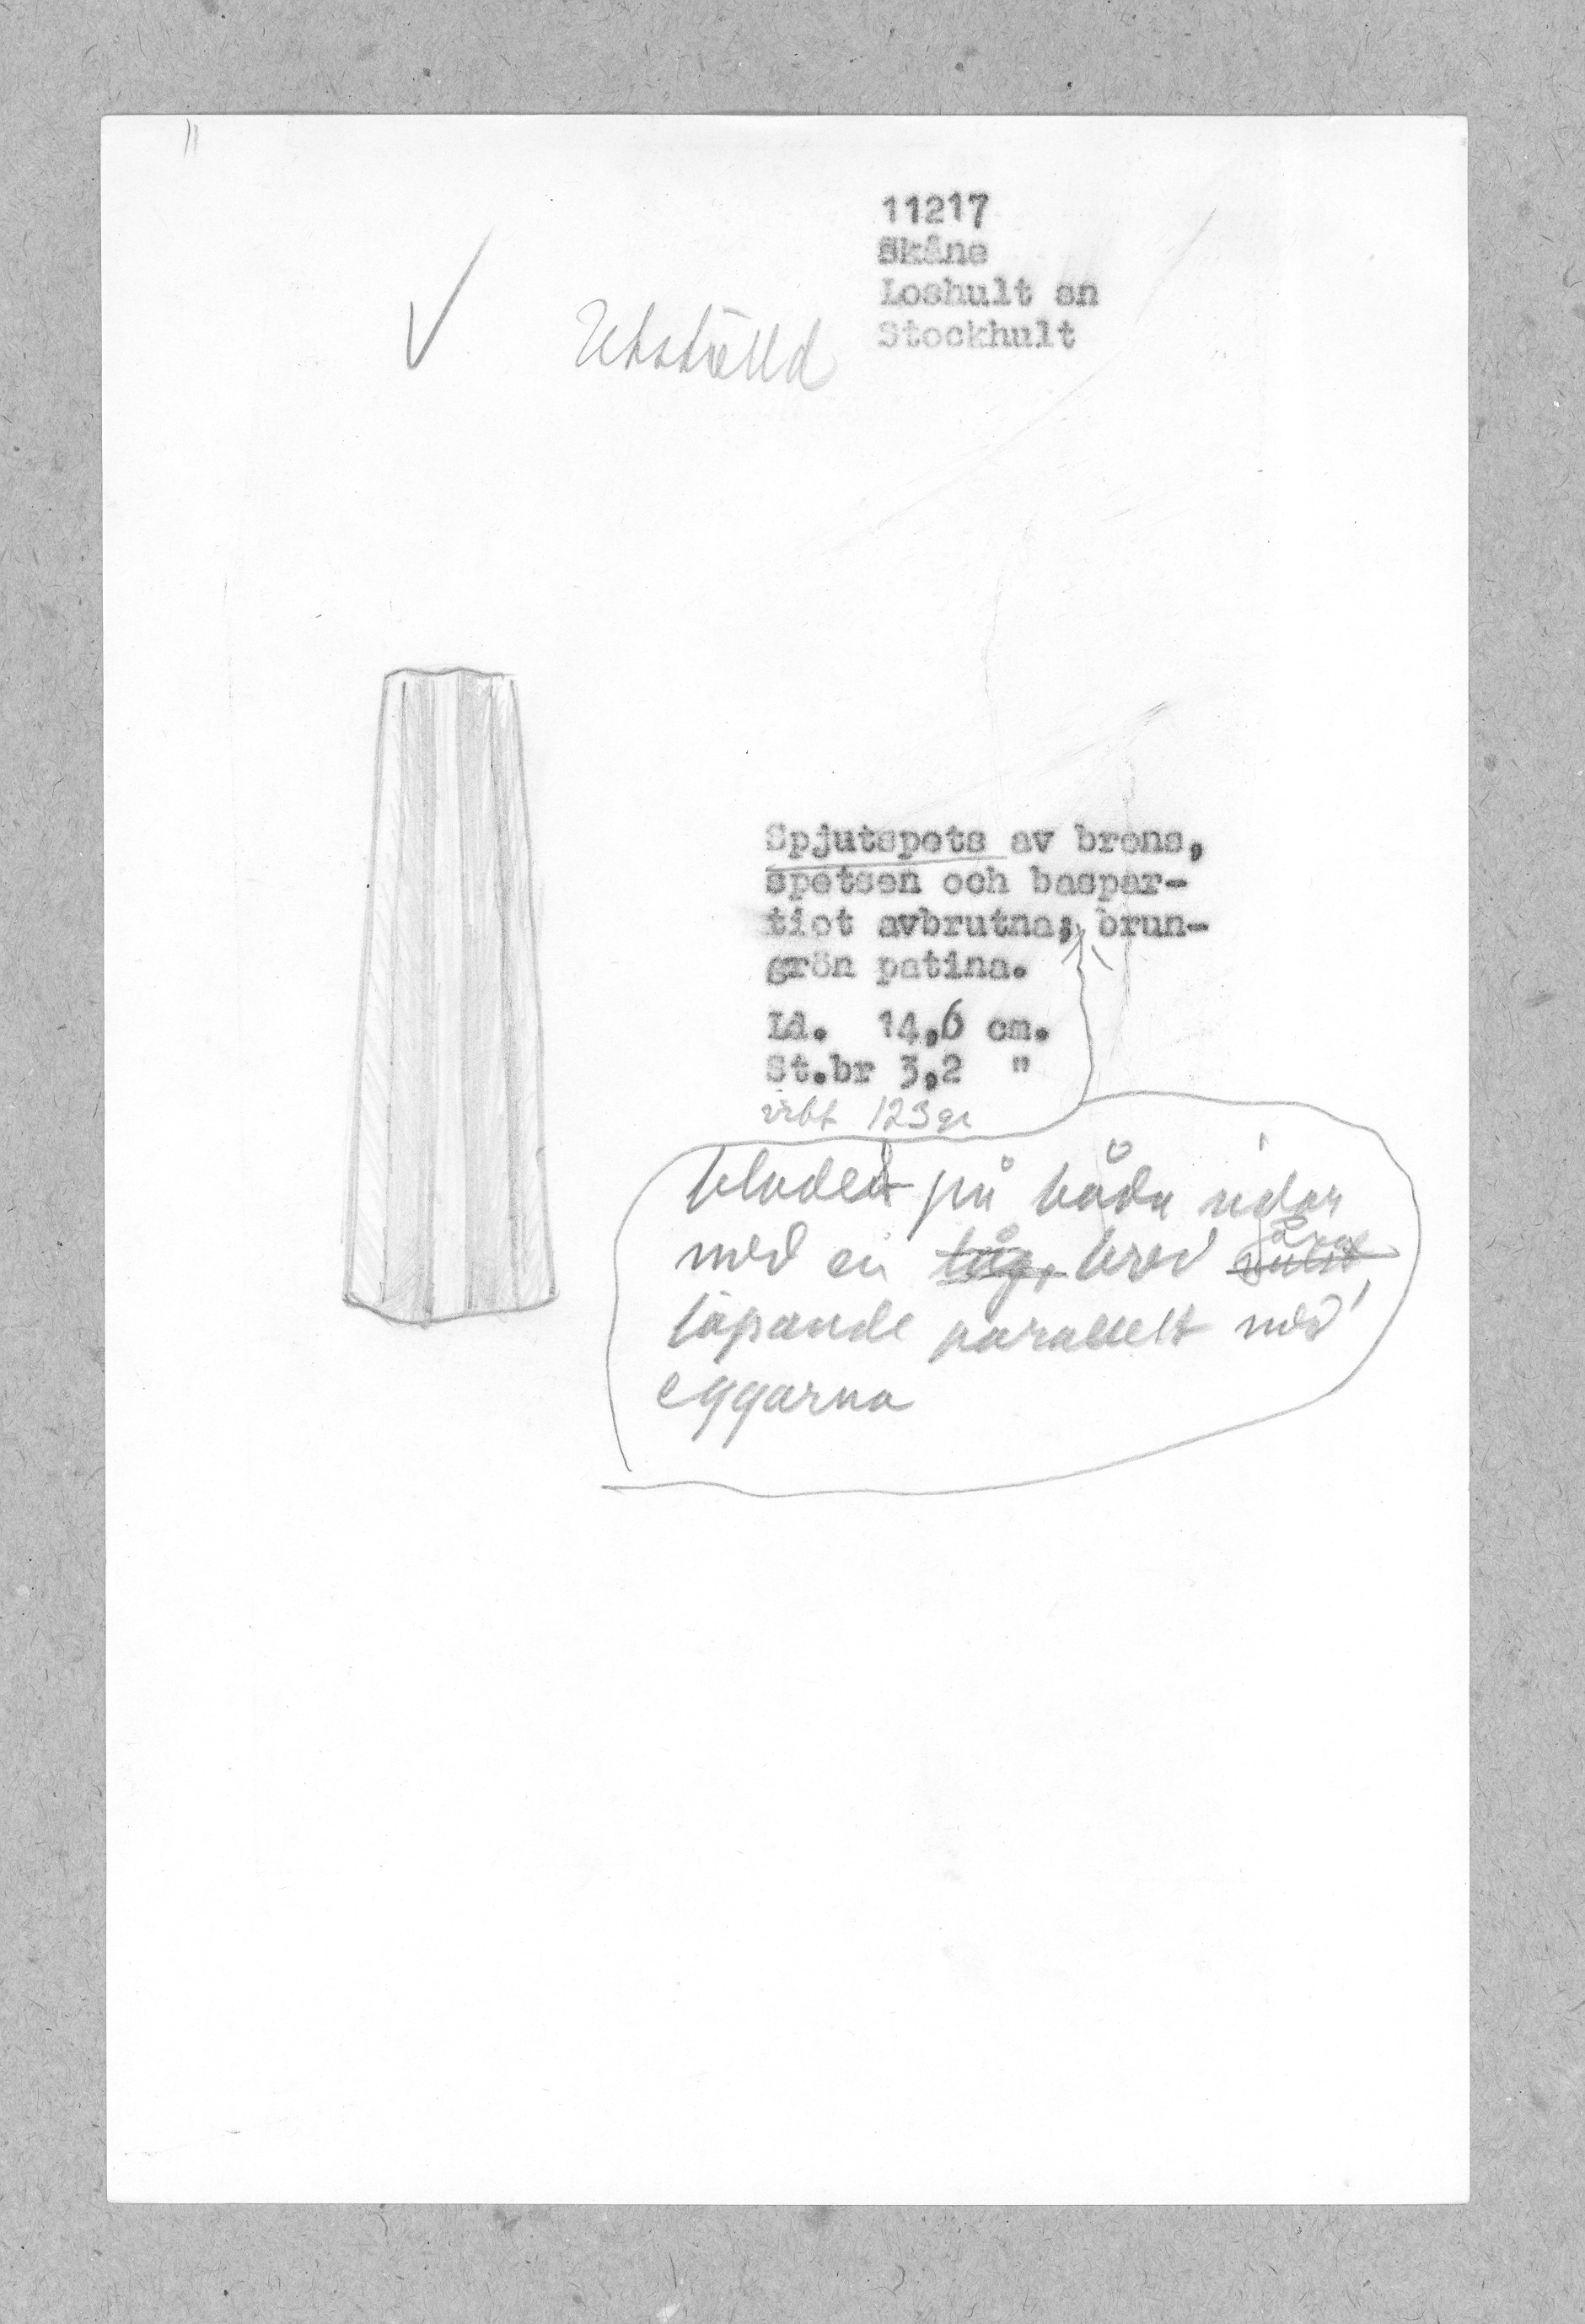 11217
Skåne
Loshult sn
Stockhult
Utställd
Spjutspets av brons,
spetsen och baspar-
tiet avbrutna; brun-
grön patina.
Ld. 14,6 cm.
St.br 3,2 "
vikt 123 gr
bladet på båda sidor
med en låg, bred
löpande parallellt med
eggarna